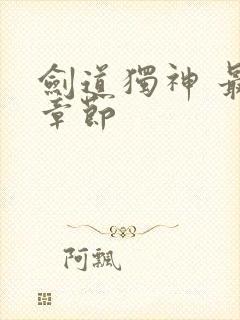 劍道獨神 最
章節
阿飄